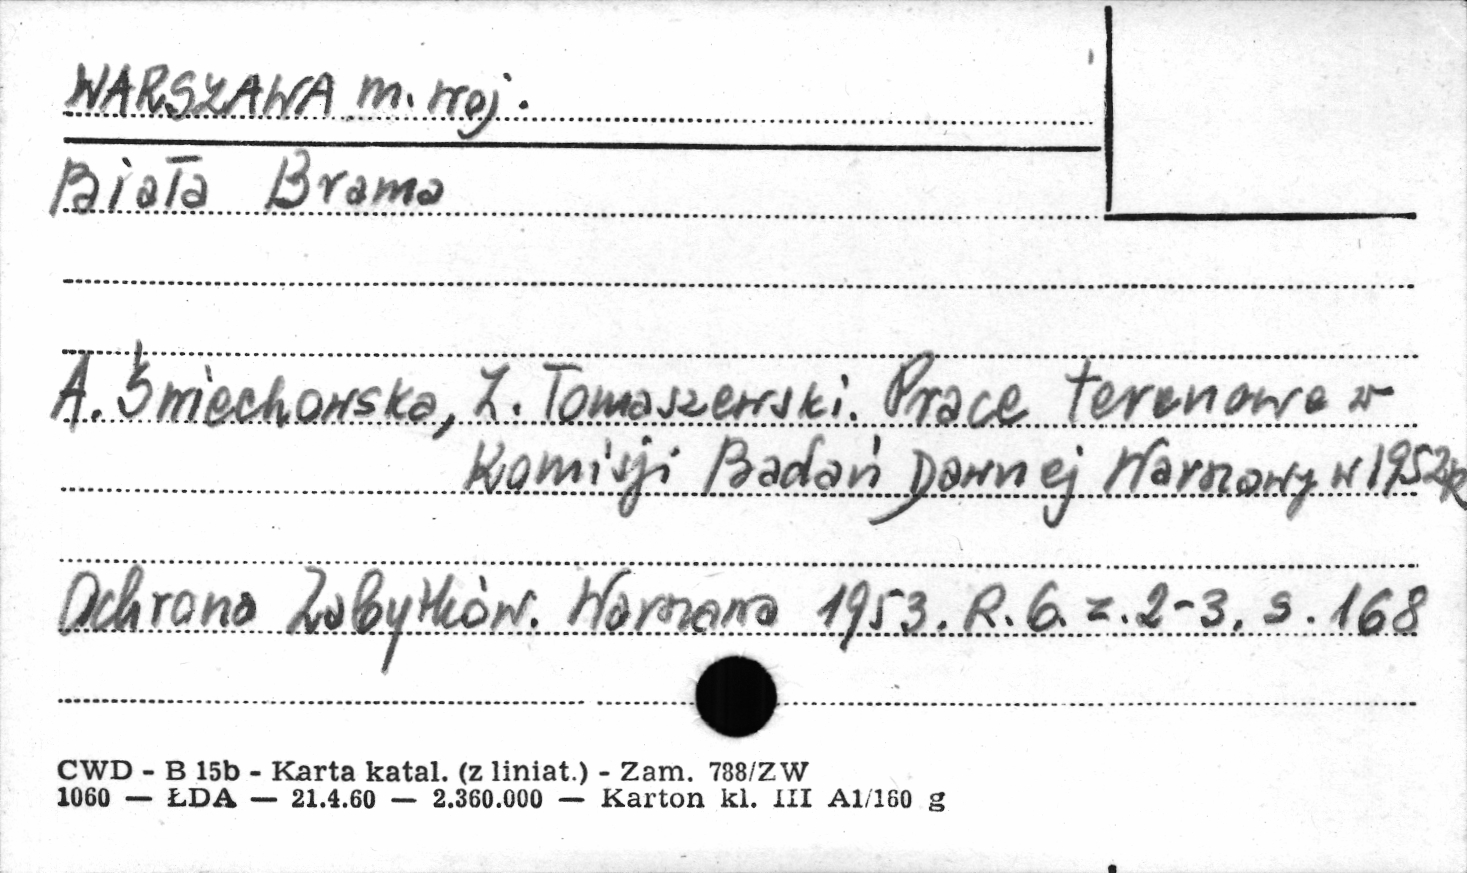 WARSZAWA m. woj.
Biała Brama
A. Śmiechowska, Z. Tomaszewski. Prace terenowe w
Komisji Badań Dawnej Warszawy w 1952 R
Ochrona Zabytków. Warszawa 1953. R. 6. z. 2-3. s. 168
CWD - B 15b - Karta katal. (z liniat.) - Zam. 788/ZW
1060 — ŁDA — 21.4.60 — 2.360.000 — Karton kl. III A1/160 g